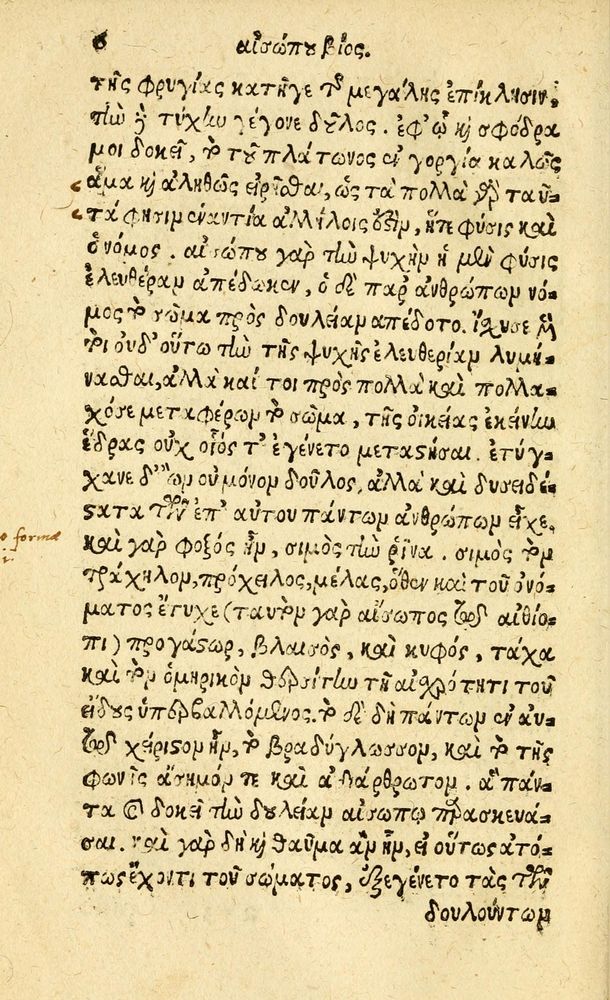 6 αἰσώπου βίος.
τῆς φρυγίας κατῆγε τῆς μεγάλης ἐπίκλησιν,
τὴν δὲ τύχην γέγονε δοῦλος. ἐφ' ᾧ καὶ σφόδρα
μοι δοκεῖ, τὸ τοῦ πλάτωνος ἐν γοργίᾳ καλῶς
ἅμα καὶ ἀληθῶς εἰρῆσθαι, ὡς τὰ πολλὰ γὰρ ταῦ-
τά φησιν ἐναντία ἀλλήλοις ἐστὶν, ἥτε φύσις καὶ
ὁ νόμος. αἰσώπου γὰρ τὴν ψυχὴν ἡ μὲν φύσις
ἐλευθέραν ἀπέδωκεν, ὁ δὲ παρ' ἀνθρώπων νό-
μος τὸ σῶμα πρὸς δουλείαν ἀπέδοτο. ἴσχυσε μέν
τοι οὐδ' οὕτω τὴν τῆς ψυχῆς ἐλευθερίαν λυμή-
νασθαι, ἀλλὰ καί τοι πρὸς πολλὰ καὶ πολλα-
χόσε μεταφέρων τὸ σῶμα, τῆς οἰκείας ἐκείνην
ἕδρας οὐχ οἷός τ' ἐγένετο μεταστῆσαι. ἐτύγ-
χανε δ' ὢν οὐ μόνον δοῦλος, ἀλλὰ καὶ δυσειδέ-
στατα τῶν ἐπ' αὐτοῦ πάντων ἀνθρώπων εἶχε.
καὶ γὰρ φοξός ἦν, σιμὸς τὴν ῥῖνα. σιμὸς τὸν
τράχηλον, πρόχειλος, μέλας, ὅθεν καὶ τοῦ ὀνό-
ματος ἔτυχε (ταυτὸν γὰρ αἴσωπος τῷ αἰθίο-
πι) προγάστωρ, βλαισὸς, καὶ κυφός, τάχα
καὶ τὸν ὁμηρικὸν θερσίτην τῇ αἰσχρότητι τοῦ
εἴδους ὑπερβαλλόμενος. τὸ δὲ δὴ πάντων ἐν αὐ-
τῷ χείριστον ἦν, τὸ βραδύγλωσσον, καὶ τὸ τῆς
φωνῆς ἄσημόν τε καὶ ἀδιάρθρωτον. ἃ πάν-
τα καὶ δοκεῖ τὴν δουλείαν αἰσώπῳ παρασκευά-
σαι. καὶ γὰρ δὴ καὶ θαῦμα ἂν ἦν, εἰ οὕτως ἀτό-
πως ἔχοντι τοῦ σώματος, ἐξεγένετο τὰς τῶν
δουλούντων
o formæ